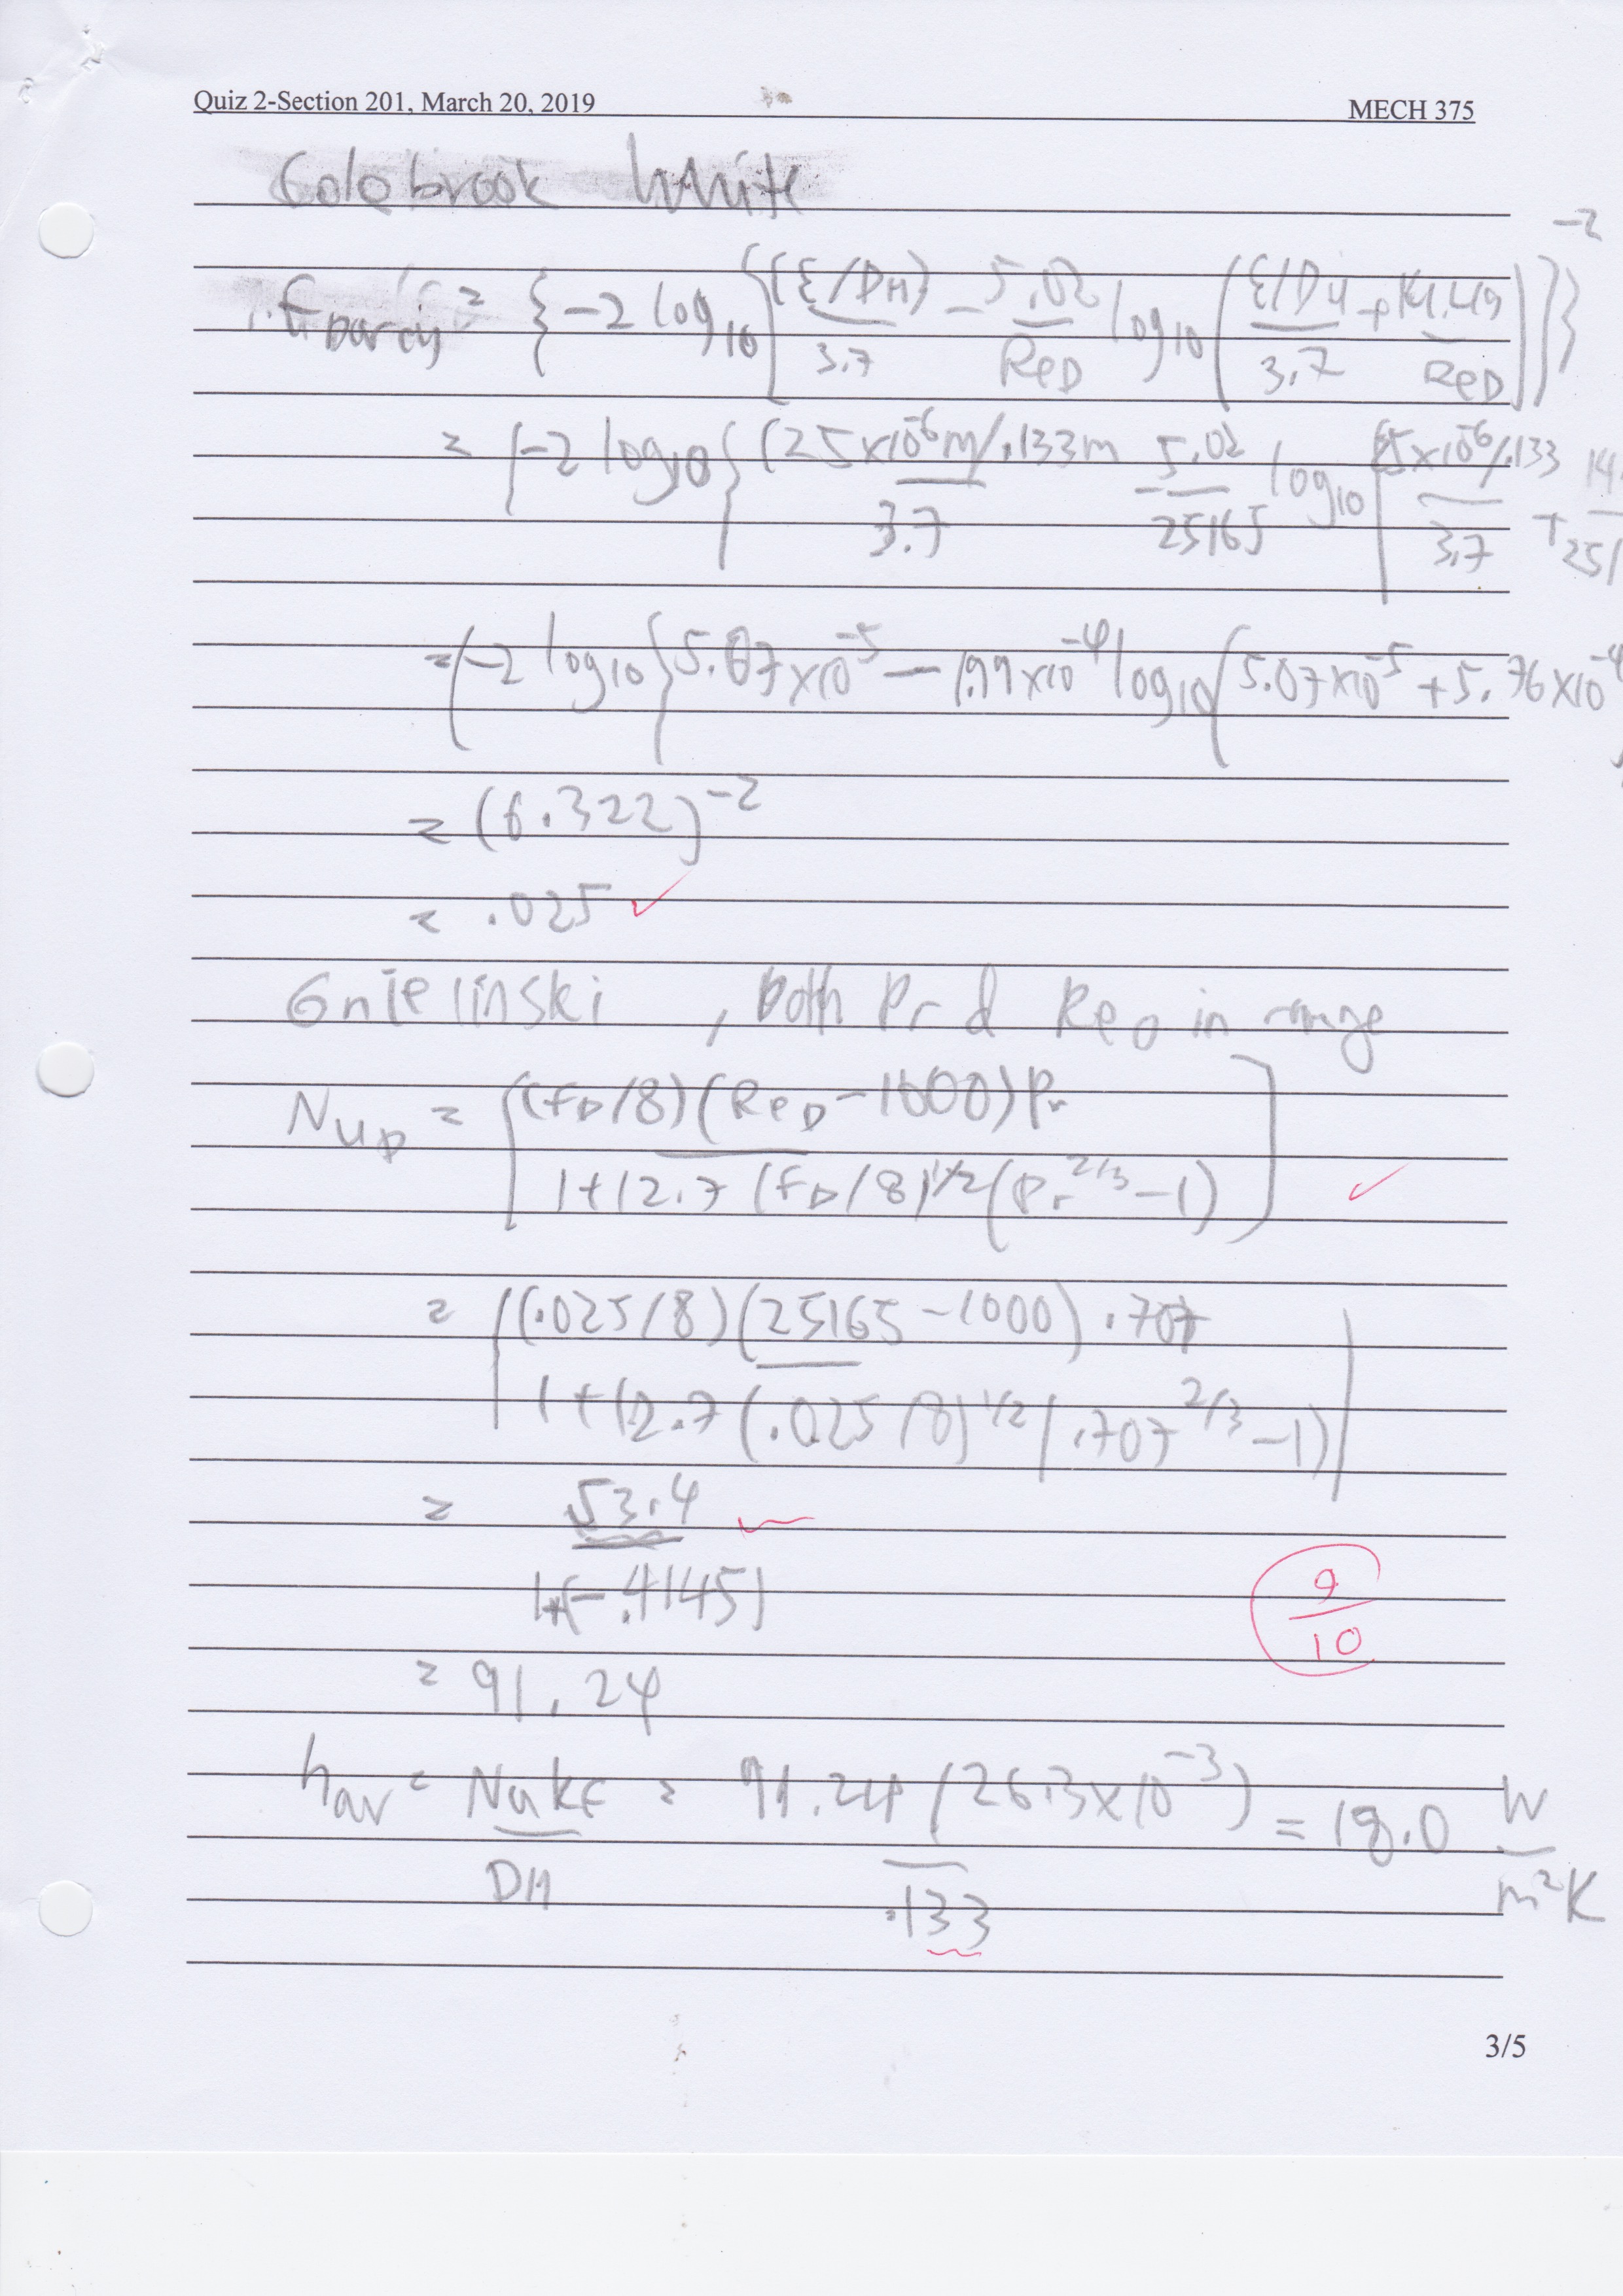 Quiz 2-Section 201, March 20, 2019 MECH 375
Colebrook White
f Darcy = { -2 log10 [ (ε/DH) / 3.7 - 5.02 / ReD log10 ( ε/DH / 3.7 + 14.49 / ReD ) ] }^-2
= [ -2 log10 { (25x10^-6 m/.133m / 3.7 - 5.02 / 25165 log10 [ 25x10^-6/.133 / 3.7 + 14. / 251
= ( -2 log10 { 5.07x10^-5 - 1.99x10^-4 log10 ( 5.07x10^-5 + 5.76x10^-4
= (6.322)^-2
= .025 ✓
Gnielinski , both Pr & ReD in range
NuD = [ (fD/8)(ReD-1000)Pr / 1+12.7 (fD/8)^1/2 (Pr^2/3 -1) ] ✓
= [ (.025/8)(25165-1000) .707 / 1+12.7 (.025/8)^1/2 (.707^2/3 -1) ]
= 53.4 / 1+(-.4145) ✓
9/10
= 91.24
hav = Nu kf / DH = 91.24 (26.3x10^-3) / .133 = 18.0 W/m²K
3/5